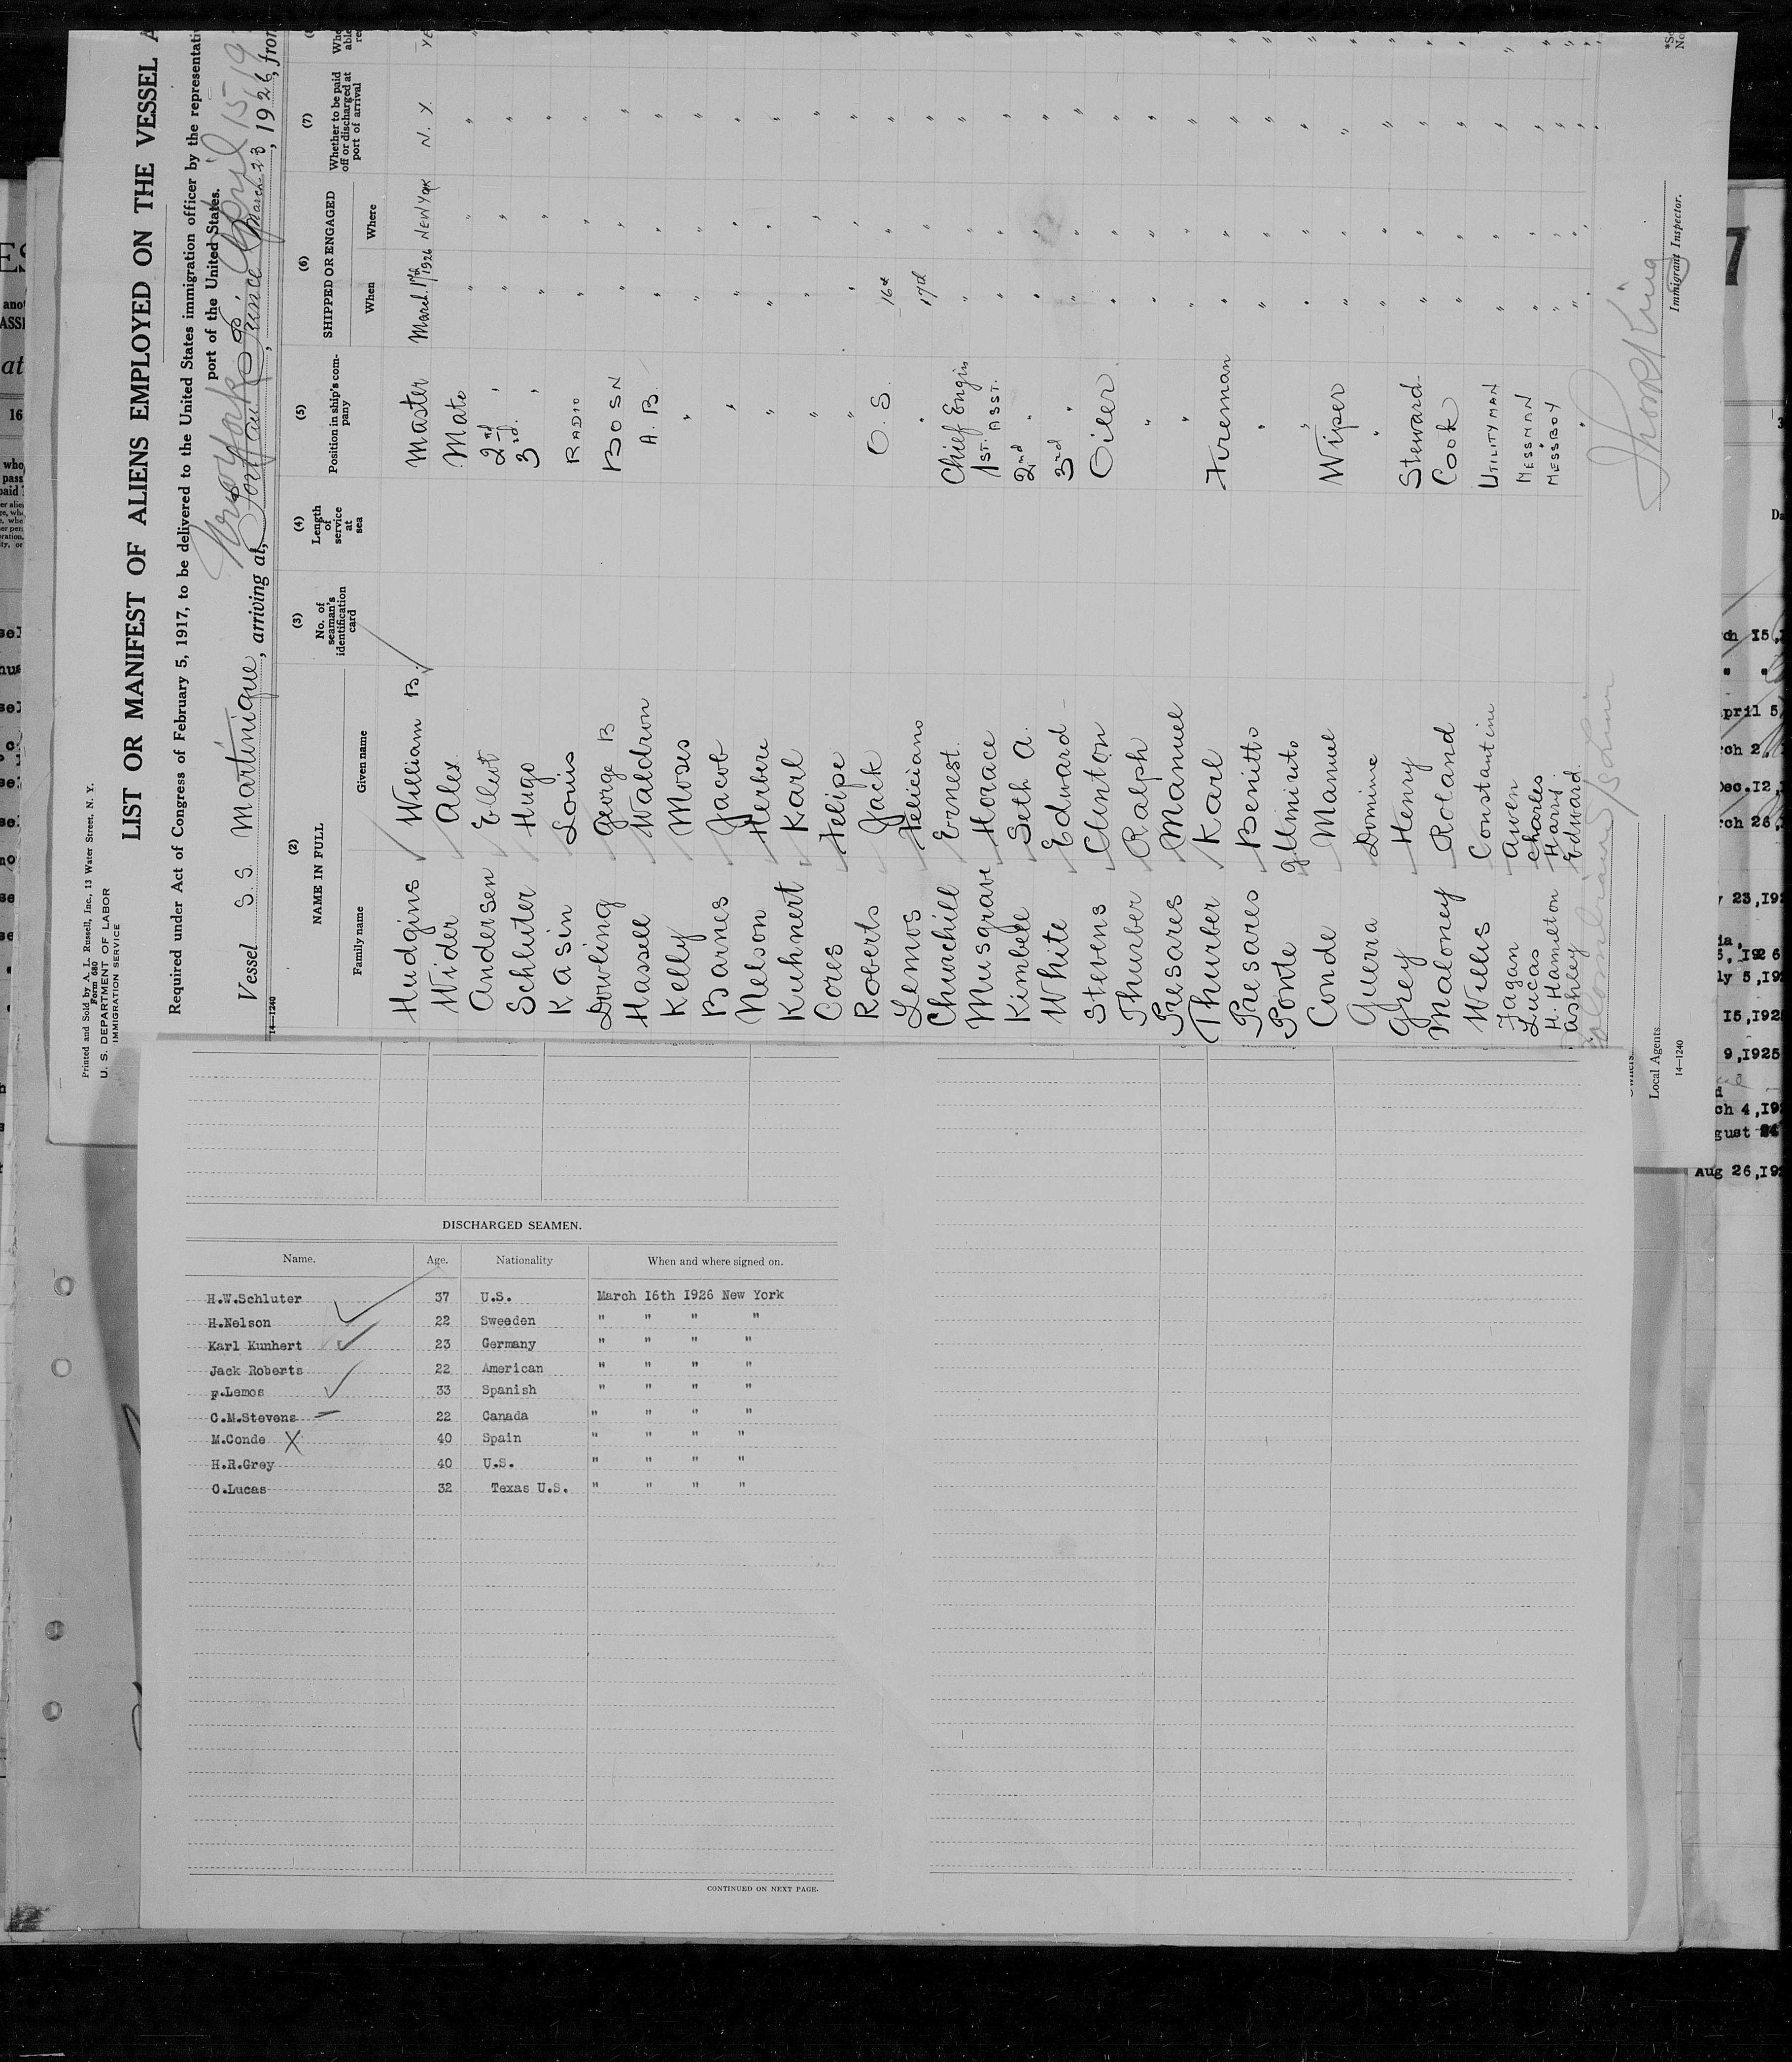 Printed and Sold by A. L. Russell, Inc., 13 Water Street, N. Y.
Form 680
U. S. DEPARTMENT OF LABOR
IMMIGRATION SERVICE
LIST OR MANIFEST OF ALIENS EMPLOYED ON THE VESSEL A
Required under Act of Congress of February 5, 1917, to be delivered to the United States immigration officer by the representati
port of the United States.
New York April 15
Vessel S. S. Martinique, arriving at, Port au Prince, March 23, 1926, from
14—1240
(2) (3) (4) (5) (6) (7)
NAME IN FULL
Family name Given name
No. of seaman's identification card
Length of service at sea
Position in ship's company
SHIPPED OR ENGAGED
When Where
Whether to be paid off or discharged at port of arrival
Hudgins William B. Master March 17th 1926 New York N. Y.
Wider Alex Mate " " "
Andersen 2nd " " " "
Schluter Hugo 3rd " " " "
Kasin Louis Radio " " "
Dowling George B Bosn " " "
Hassell Waldron A. B. " " "
Kelly Moses " " " "
Barnes Jacob " " " "
Nelson Herbert " " " "
Kuhnert Karl " " " "
Cores Felipe " " " "
Roberts Jack O. S. 16th " "
Lemos Feliciano " 17th " "
Churchill Ernest Chief Engin " " "
Musgrave Horace 1st. Asst. " " "
Kimbell Seth A. 2nd " " " "
White Edward 3rd " " " "
Stevens Clinton Oiler " " "
Thurber Ralph " " " "
Presares Manuel " " " "
Thurber Karl Fireman " " "
Presares Benitto " " " "
Ponte " " " "
Conde Manuel Wiper " " "
Guerra " " " "
Grey Henry Steward " " "
Maloney Roland Cook " " "
Willis Constantine Utilityman " " "
Fagan Owen Messman " " "
Lucas Charles Messboy " " "
H. Hamilton Harris " " "
Ashley Edward " " " "
Immigrant Inspector.
Local Agents
14—1240
DISCHARGED SEAMEN.
Name. Age. Nationality When and where signed on.
H.W.Schluter 37 U.S. March 16th 1926 New York
H.Nelson 22 Sweeden " " " "
Karl Kunhert 23 Germany " " " "
Jack Roberts 22 American " " " "
F.Lemos 33 Spanish " " " "
C.M.Stevens 22 Canada " " " "
M.Conde X 40 Spain " " " "
H.R.Grey 40 U.S. " " " "
C.Lucas 32 Texas U.S. " " " "
CONTINUED ON NEXT PAGE.
7
15,
pril 5,
Dec.12,
26,
23,192
ly 5,19
15,1925
9,1925
ch 4,19
gust 24
Aug 26,19